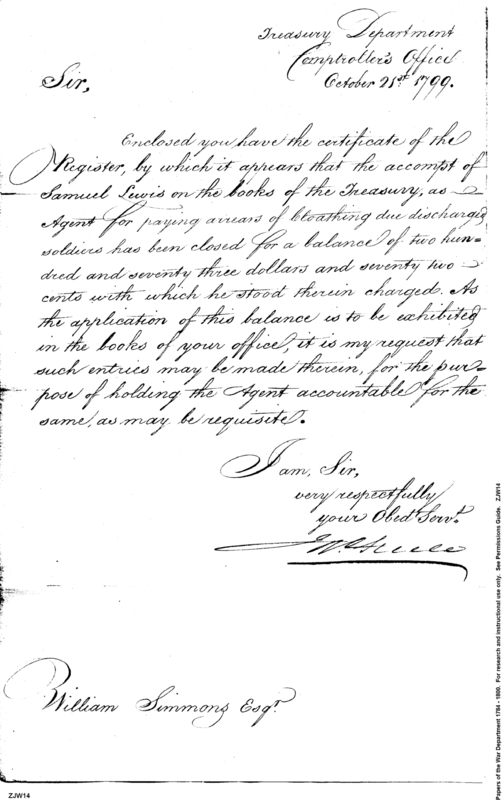 Treasury Department
Comptroller's Office
October 21st 1799.
Sir,
Enclosed you have the certificate of the
Register, by which it appears that the accompt of
Samuel Lewis on the books of the Treasury, as
Agent for paying arrears of Cloathing due discharged
soldiers has been closed for a balance of two hun-
dred and seventy three dollars and seventy two
cents with which he stood therein charged. As
the application of this balance is to be exhibited
in the books of your office, it is my request that
such entries may be made therein, for the pur-
pose of holding the Agent accountable for the
same, as may be requisite.
I am, Sir,
very respectfully
your Obedt Servt.
William Simmons Esqr.
ZJW14
Papers of the War Department 1784 - 1800. For research and instructional use only. See Permissions Guide. ZJW14